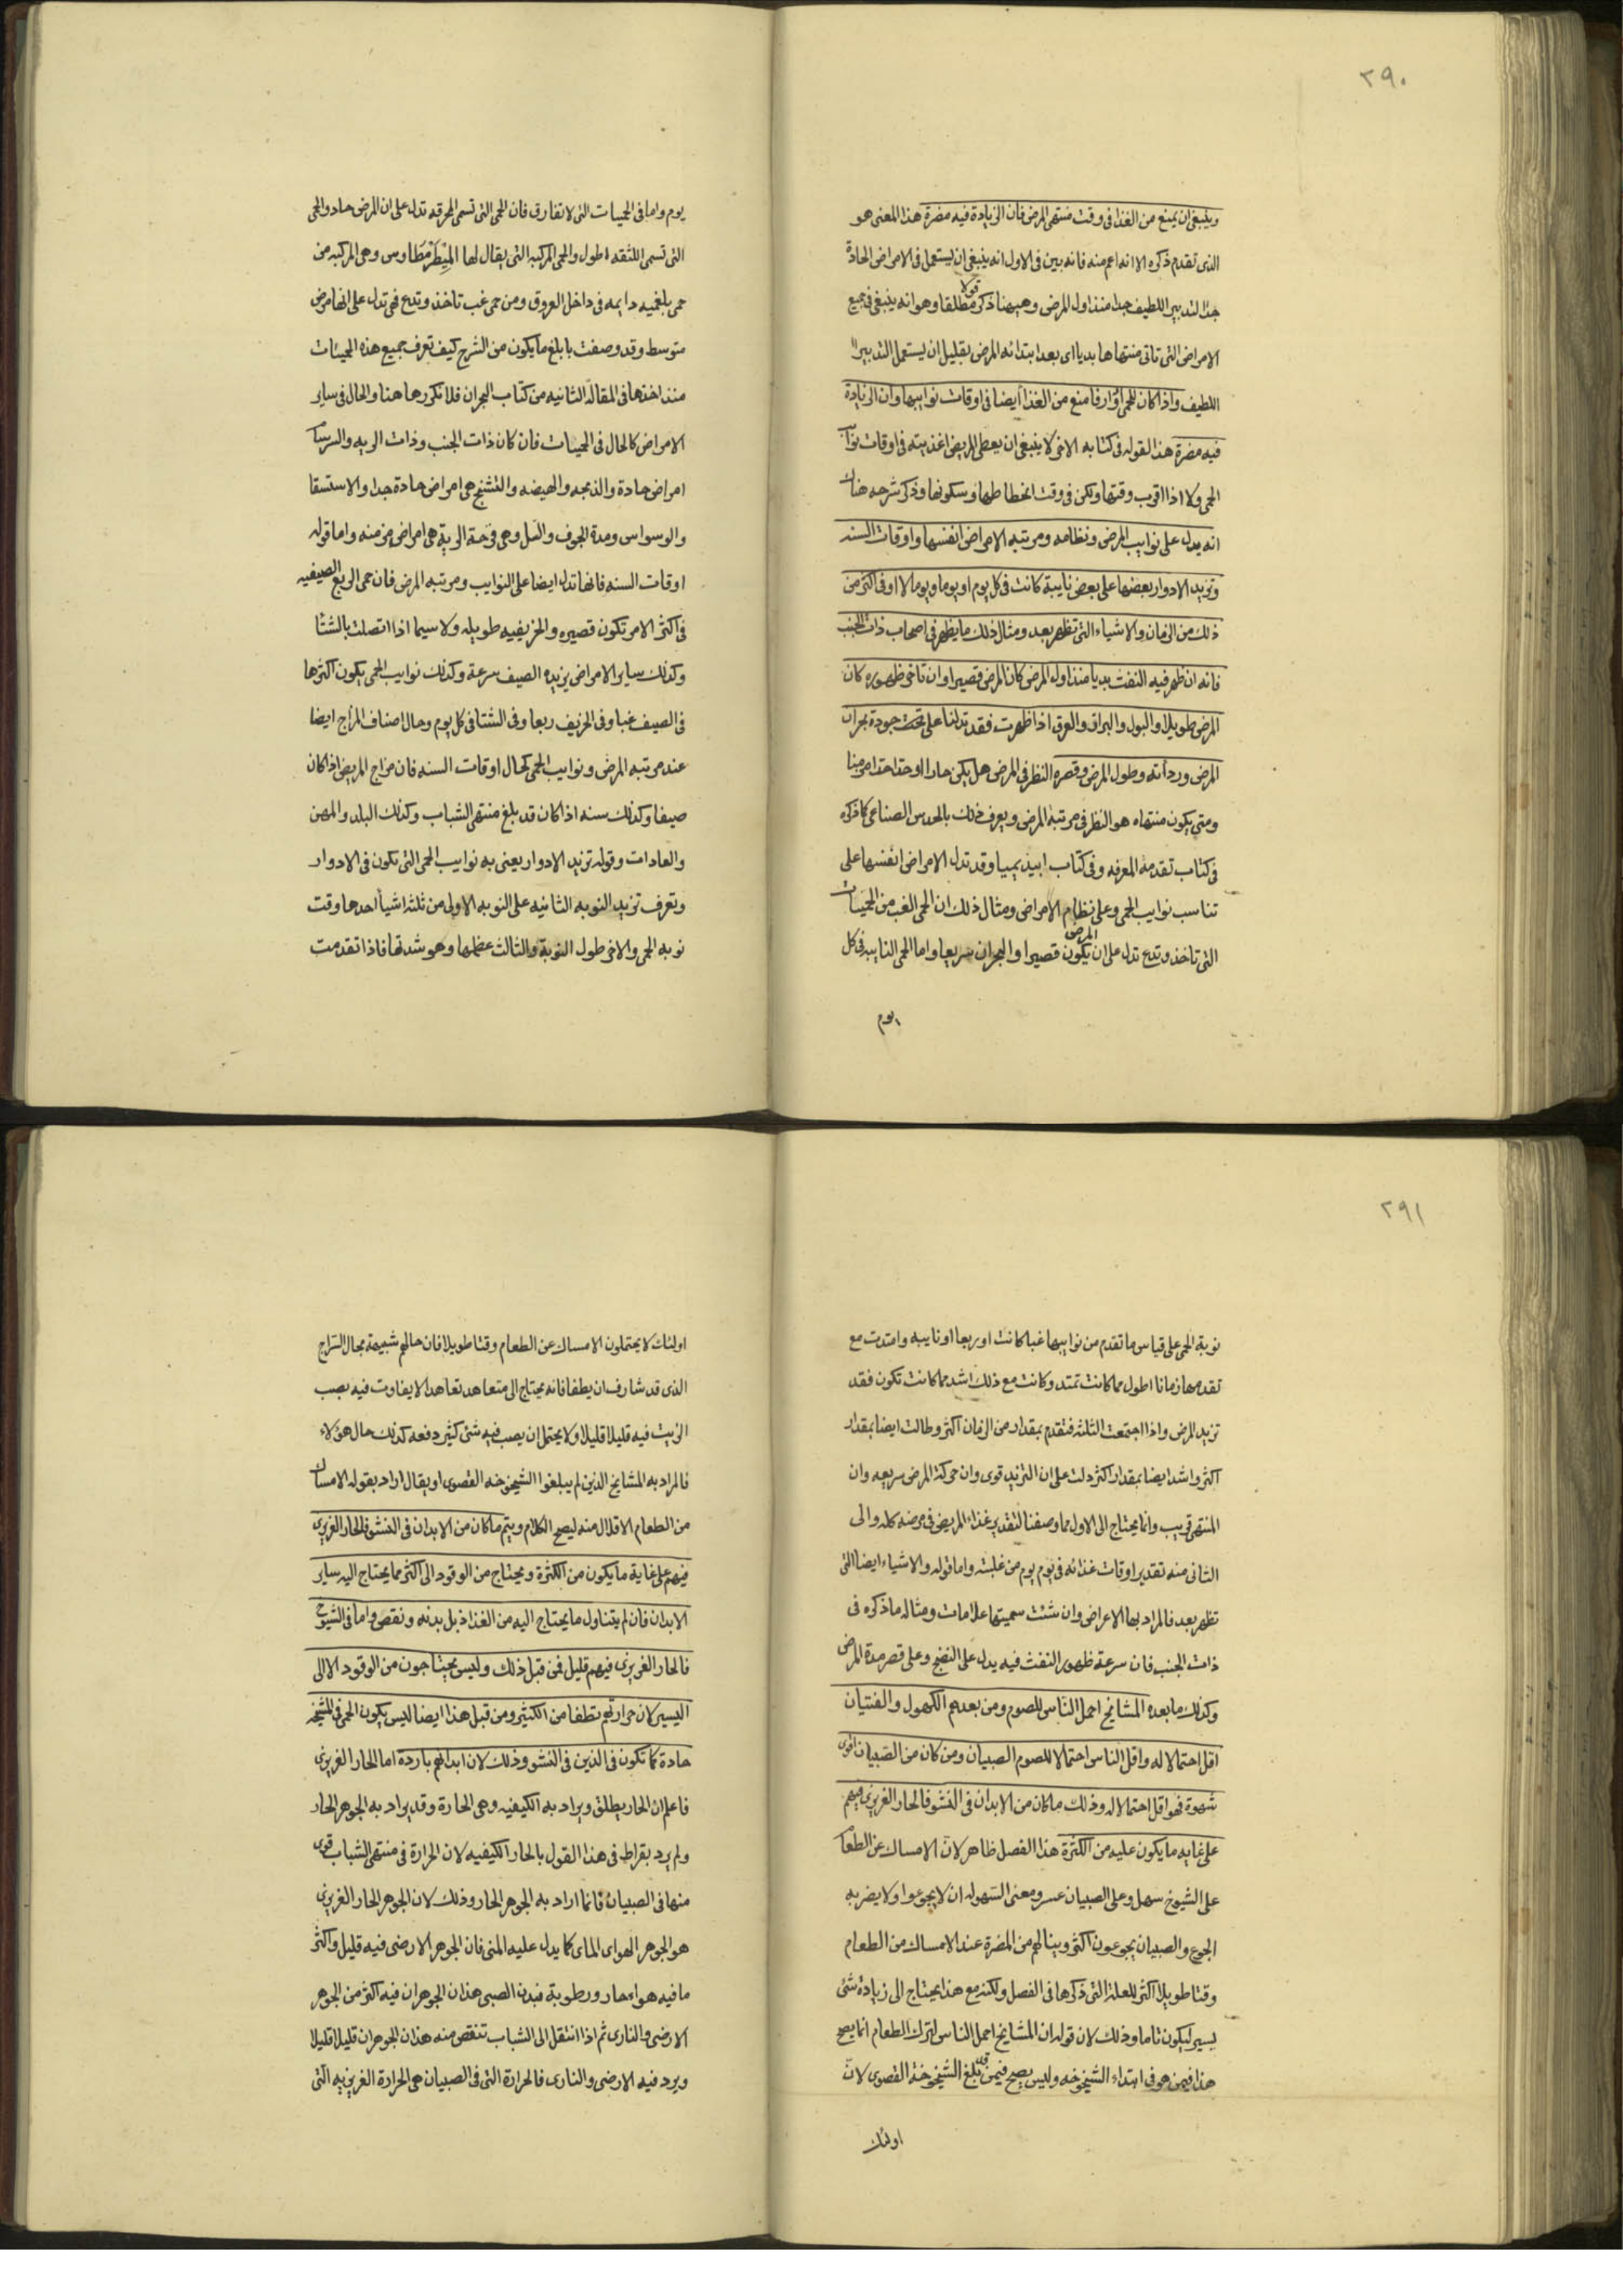 ٢٩٠
وينبغى ان يمنع من الغذا فى وقت منتهى المرض فان الزيادة فيه مضرة هذا المعنى هو
الذى تقدم ذكره الا انه اعم منه فانه بين فى الاول انه ينبغى ان يستعمل فى الامراض الحادة
جدا التدبير اللطيف جدا منذ اول المرض وههنا ذكر قولا مطلقا وهو انه ينبغى فى جميع
الامراض التى تاتى منتهاها بديا اى بعد ابتدائه المرض بقليل ان يستعمل التدبير
اللطيف واذا كان للحمى ادوار فامنع من الغذا ايضا فى اوقات نوايبها وان الزيادة
فيه مضرة هذا لقوله فى كتابه الاخر لا ينبغى ان يعطى المريض اغذيته فى اوقات نوآ
الحمى ولا اذا اقرب وقتها ولكن فى وقت انحطاطها وسكونها وذكر شرحه هناك
انه يدل على نوايب المرض ونظامه ومرتبته الامراض انفسها واوقات السنه
وتزيد الادوار بعضها على بعض نايبة كانت فى كل يوم او يوما ويوما لا او فى اكثر من
ذلك من الزمان والاشياء التى تظهر بعد ومثال ذلك ما يظهر فى اصحاب ذات الجنب
فانه ان ظهر فيه النفث بديا منذ اول المرض كان المرض قصيرا وان تاخر ظهوره كان
المرض طويلا والبول والبراز والعرق اذا ظهرت فقد تدلنا على تحت جودة بحران
المرض وردأته وطول المرض وقصره النظر فى المرض هل يكن حادا او حدا حدا مزمنا
ومتى يكون منتهاه هو النظر فى مرتبة المرض ويعرف ذلك بالحدس الصناعى كما ذكره
فى كتاب تقدمة المعرفه وفى كتاب ابيديميا وقد تدل الامراض انفسها على
تناسب نوايب الحمى وعلى نظام الامراض ومثال ذلك ان الحمى الغب من الحميات
التى تاخذ وتدع تدل على ان يكون المرض قصيرا والبحران سريعا واما الحمى النايبه فى كل
يوم
يوم واما فى الحميات التى لا تفارق فان الحمى التى تسمى المحرقه تدل على ان المرض حاد والحمى
التى تسمى اللثقه اطول والحمى المركبه التى يقال لها الميطرمطاوس وهى المركبه من
حمى بلغميه دايمه فى داخل العروق ومن حمى غب تاخذ وتدع فهى تدل على انها مرض
متوسط وقد وصفت بابلغ ما يكون من الشرح كيف تعرف جميع هذه الحميات
منذ اخذها فى المقالة الثانيه من كتاب البحران فلا نكررها هنا والحال فى ساير
الامراض كالحال فى الحميات فان كان ذات الجنب وذات الريه والسرسآ
امراض حادة والذبحه والهيضه والتشنج هى امراض حادة جدا والاستسقا
والوسواس ومدة الجوف والسل وهى قرحة الرية هى امراض مزمنه واما قوله
اوقات السنه فانها تدل ايضا على النوايب ومرتبه المرض فان حمى الربع الصيفيه
فى اكثر الامر تكون قصيره والخريفيه طويله ولا سيما اذا اتصلت بالشتا
وكذلك ساير الامراض يزيده الصيف سرعة وكذلك نوايب الحمى يكون اكثرها
فى الصيف غبا وفى الخريف ربعا وفى الشتا فى كل يوم وحال اصناف المزاج ايضا
عند مرتبه المرض ونوايب الحمى كحال اوقات السنه فان مزاج المريض اذا كان
صيفا وكذلك سنه اذا كان قد بلغ منتهى الشباب وكذلك البلد والمهن
والعادات وقوله تزيد الادوار يعنى به نوايب الحمى التى تكون فى الادوار
وتعرف تزيد النوبه الثانيه على النوبه الاولى من ثلثة اشيا احدها وقت
نوبه الحمى والاخر طول النوبة والثالث عظمها وهو شدتها فاذا تقدمت
٢٩١
نوبة الحمى على قياس ما تقدم من نوايبها غبا كانت او ربعا او نايبه وامتدت مع
تقدمها زمانا اطول مما كانت تمتد وكانت مع ذلك اشد مما كانت تكون فقد
تزيد المرض واذا اجتمعت الثلثه فتقدم بمقدار من الزمان اكثر وطالت ايضا بمقدار
اكثر واشد ايضا بمقدار اكثر دلت على ان التزيد قوى وان حركة المرض سريعه وان
المنتهى قريب وانما يحتاج الى الاول مما وصفنا لتقدير غذاء المريض فى مرضه كله والى
الثانى منه تقدير اوقات غذائه فى يوم يوم من غلبته واما قوله والاشياء ايضا التى
تظهر بعد فالمراد بها الاعراض وان شئت سميتها علامات ومثاله ما ذكره فى
ذات الجنب فان سرعة ظهور النفث فيه يدل على النضج وعلى قصر مدة المرض
وكذلك ما بعده المشايخ احمل الناس للصوم ومن بعدهم الكهول والفتيان
اقل احتمالا له واقل الناس احتمالا للصوم الصبيان ومن كان من الصبيان اقوى
شهوة فهو اقل احتمالا له وذلك ما كان من الابدان فى النشو فالحار الغريزى فيهم
على غايه ما يكون عليه من الكثرة هذا الفصل ظاهر لان الامساك عن الطعآ
على الشيوخ سهل وعلى الصبيان عسر ومعنى السهوله ان لا يجوعوا ولا يضر به
الجوع والصبيان يجوعون اكثر وينالهم من المضرة عند الامساك من الطعام
وقتا طويلا اكثر للعلة التى ذكرها فى الفصل ولكنه مع هذا يحتاج الى زيادة شئ
يسير ليكون تاما وذلك لان قوله ان المشايخ احمل الناس لترك الطعام انما يصح
هذا فيمن هو فى ابتداء الشيخوخه وليس يصح فيمن قد بلغ الشيخوخة القصوى لان
اولئك
اولئك لا يحتملون الامساك عن الطعام وقتا طويلا فان حالهم شبيهة بحال السراج
الذى قد شارف ان يطفا فانه يحتاج الى متعاهد تعاهدا لا يفاوت فيه يصب
الزيت فيه قليلا قليلا ولا يحتمل ان يصب فيه شئ كثير دفعه كذلك حال هؤلاء
فالمراد به المشايخ الذين لم يبلغوا الشيخوخه القصوى او يقال اراد بقوله الامساك
من الطعام الاقلال منه ليصح الكلام ويتم ما كان من الابدان فى النشو فالحار الغريزى
فيهم على غاية ما يكون من الكثرة ويحتاج من الوقود الى اكثر مما يحتاج اليه ساير
الابدان فان لم يتناول ما يحتاج اليه من الغذا ذبل بدنه ونقص واما فى الشيوخ
فالحار الغريزى فيهم قليل فمن قبل ذلك وليس يحتاجون من الوقود الا الى
اليسير لان حرارتهم تطفا من الكثير ومن قبل هذا ايضا ليس يكون الحمى فى المشيخه
حادة كما تكون فى الذين فى النشو وذلك لان ابدانهم باردة اما الحار الغريزى
فاعلم ان الحار يطلق ويراد به الكيفيه وهى الحارة وقد يراد به الجوهر الحار
ولم يرد بقراط فى هذا القول بالحار الكيفيه لان الحرارة فى منتهى الشباب قوى
منها فى الصبيان فانما اراد به الجوهر الحار وذلك لان الجوهر الحار الغريزى
هو الجوهر الهواى الماى كما يدل عليه المنى فان الجوهر الارضى فيه قليل واكثر
ما فيه هواء حار ورطوبة فبدن الصبى هذان الجوهران فيه اكثر من الجوهر
الارضى والنارى ثم اذا انتقل الى الشباب تنقص منه هذان الجوهران قليلا قليلا
ويرد فيه الارضى والنارى فالحرارة التى فى الصبيان هى الحرارة الغريزيه التى